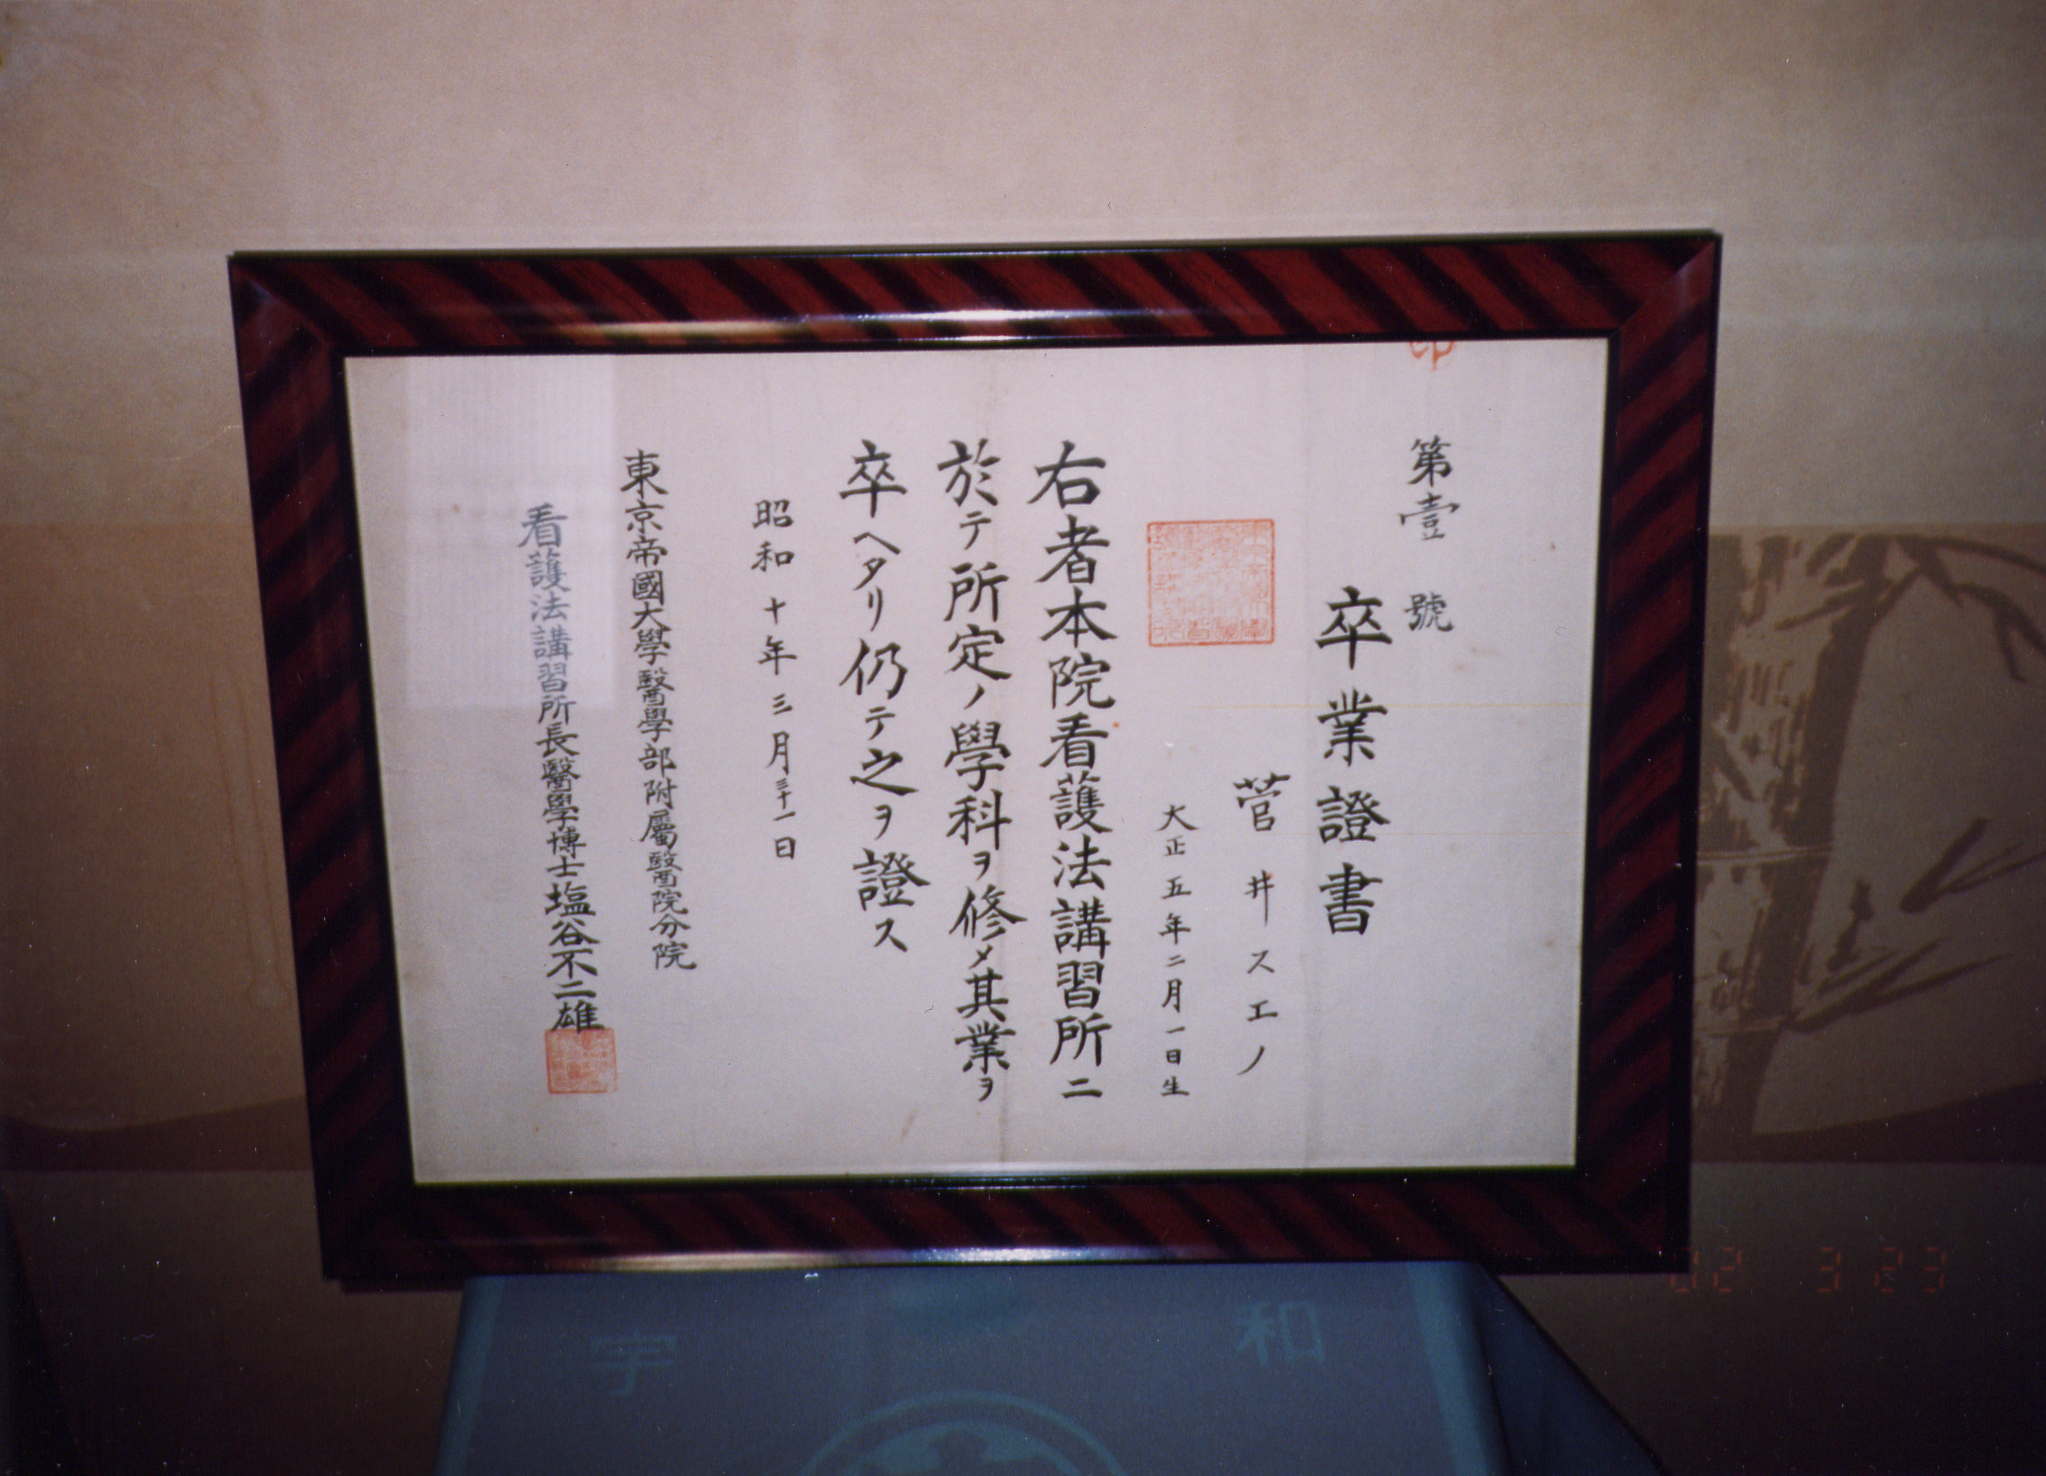 第壹號
卒業證書
菅井スエノ
大正五年二月一日生
右者本院看護法講習所ニ
於テ所定ノ學科ヲ修メ其業ヲ
卒ヘタリ仍テ之ヲ證ス
昭和十年三月三十一日
東京帝國大學醫學部附屬醫院分院
看護法講習所長醫學博士塩谷不二雄
和
宇
02 3 23